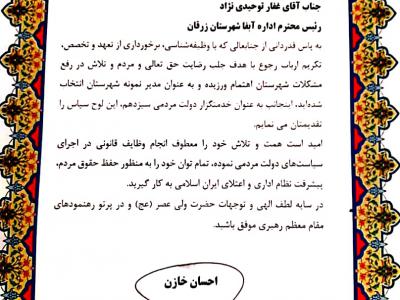 جناب آقای غفار توحیدی نژاد
رئیس محترم اداره آبفا شهرستان زرقان
به پاس قدردانی از جنابعالی که با وظیفه‌شناسی، برخورداری از تعهد و تخصص،
تکریم ارباب رجوع با هدف جلب رضایت حق تعالی و مردم و تلاش در رفع
مشکلات شهرستان اهتمام ورزیده و به عنوان مدیر نمونه شهرستان انتخاب
شده‌اید، اینجانب به عنوان خدمتگزار دولت مردمی سیزدهم، این لوح سپاس را
تقدیمتان می نمایم.
امید است همت و تلاش خود را معطوف انجام وظایف قانونی در اجرای
سیاست‌های دولت مردمی نموده، تمام توان خود را به منظور حفظ حقوق مردم،
پیشرفت نظام اداری و اعتلای ایران اسلامی به کار گیرید.
در سایه لطف الهی و توجهات حضرت ولی عصر (عج) و در پرتو رهنمودهای
مقام معظم رهبری موفق باشید.
احسان خازن